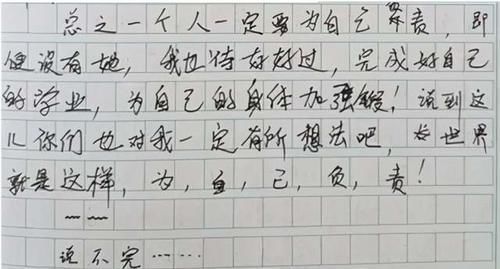 总之一个人一定要为自己累责，即
便没有她，我也待好好过，完成好自己
的学业，为自己的身体加强锻！说到这
儿你们也对我一定有所想法吧，世界
就是这样，为，自，己，负，责！
~~
说不完……